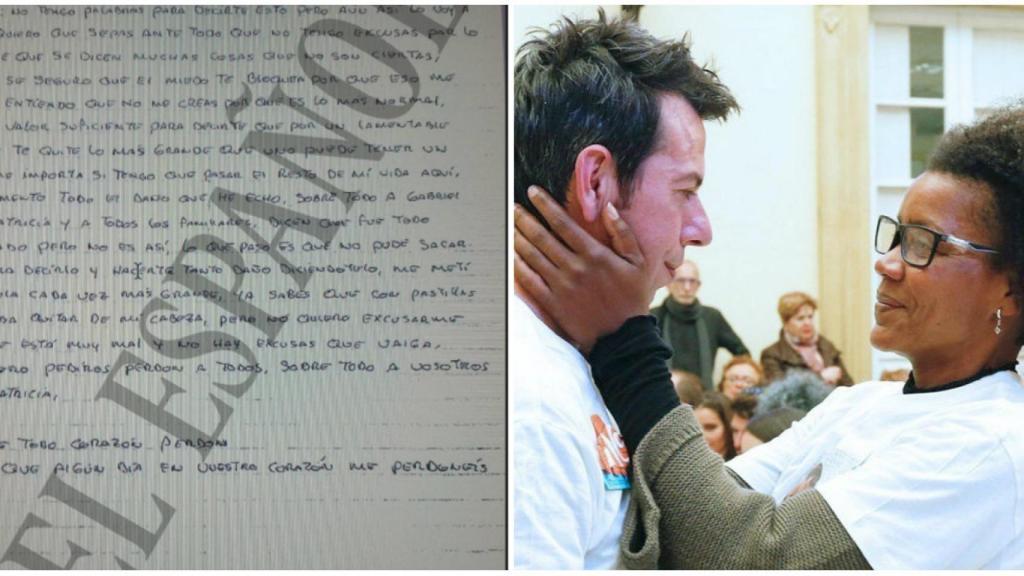 NO TENGO PALABRAS PARA DECIRTE ESTO PERO AUN ASI LO VOY A
QUIERO QUE SEPAS ANTE TODO QUE NO TENGO EXCUSAS POR LO
E QUE SE DICEN MUCHAS COSAS QUE NO SON CIERTAS,
SE SEGURO QUE EL MIEDO TE BLOQUEA POR QUE ESO ME
ENTIENDO QUE NO ME CREAS POR QUE ES LO MAS NORMAL,
VALOR SUFICIENTE PARA DECIRTE QUE POR UN LAMENTABLE
TE QUITE LO MAS GRANDE QUE UNO PUEDE TENER UN
IMPORTA SI TENGO QUE PASAR EL RESTO DE MI VIDA AQUÍ,
MENTO TODO EL DAÑO QUE HE ECHO, SOBRE TODO A GABRIEL
ATRICIA Y A TODOS LOS FAMILIARES, DICEN QUE FUE TODO
ADO PERO NO ES ASÍ, LO QUE PASO ES QUE NO PUDE SACAR
RA DECIRLO Y HACERTE TANTO DAÑO DICIENDOTELO, ME METÍ
CADA VEZ MAS GRANDE, YA SABES QUE CON PASTILLAS
QUITAR DE MI CABEZA, PERO NO QUIERO EXCUSARME
E ESTÁ MUY MAL Y NO HAY EXCUSAS QUE VALGA,
ERO PEDIROS PERDON A TODOS, SOBRE TODO A VOSOTROS
ATRICIA,
E TODO CORAZÓN PERDON
QUE ALGÚN DÍA EN VUESTRO CORAZÓN ME PERDONEÍS
EL ESPAÑOL